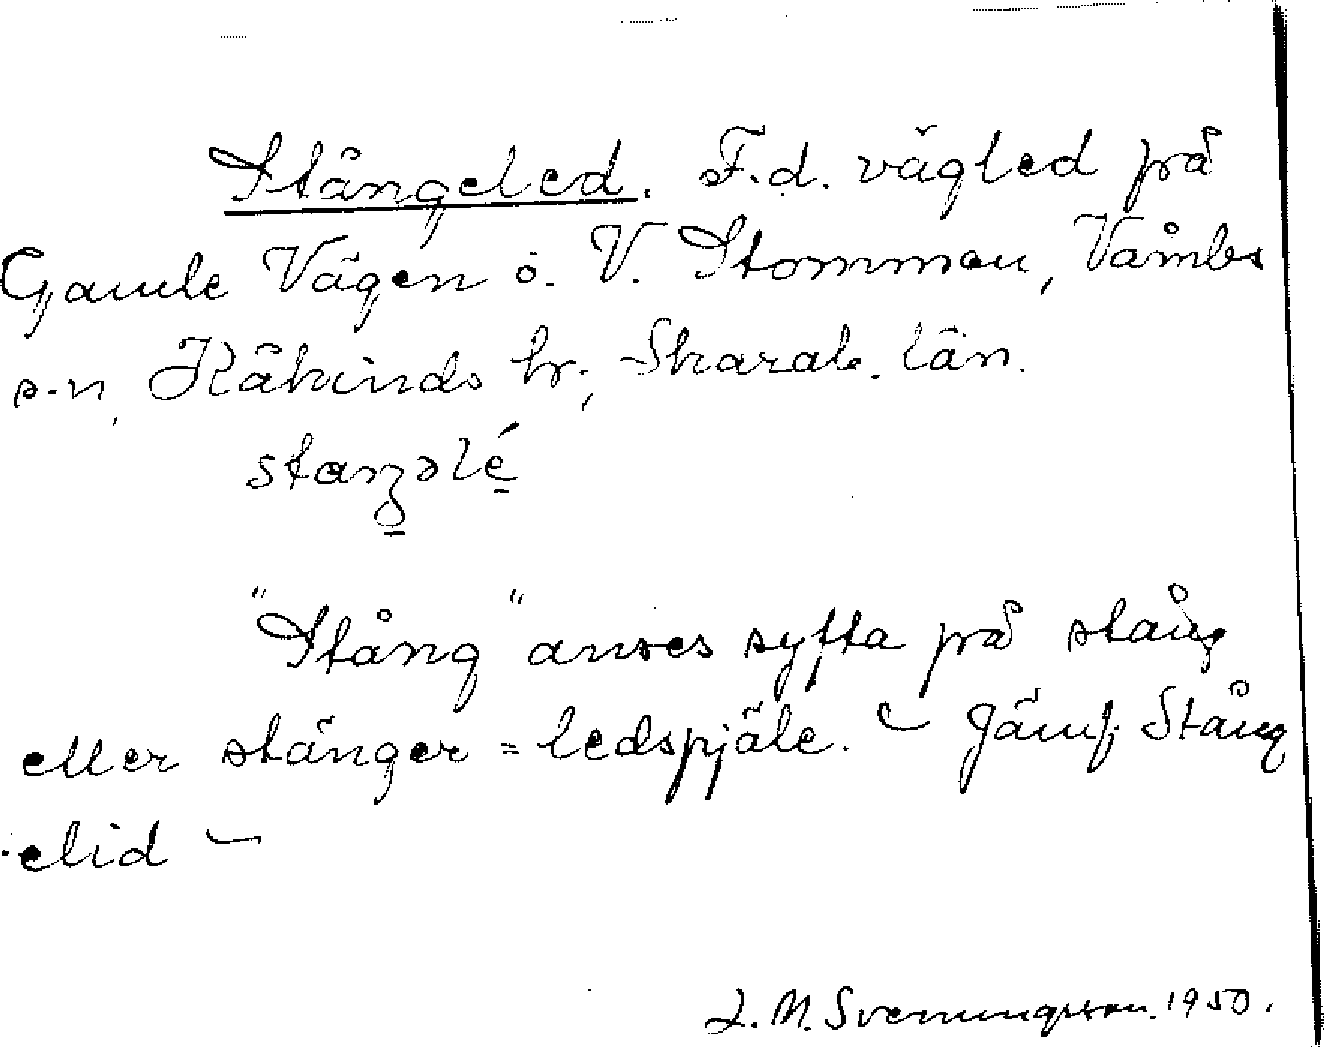 Stångeled. F.d. vägled på
Gamle Vägen ö. V. Stommen, Våmbs
s-n, Kåkinds hr., Skarab. län.
"Stång" anses syfta på stång
eller stänger = ledspjäle. – Jämf. Stång
elid –
L. M. Svenungsson. 1950.